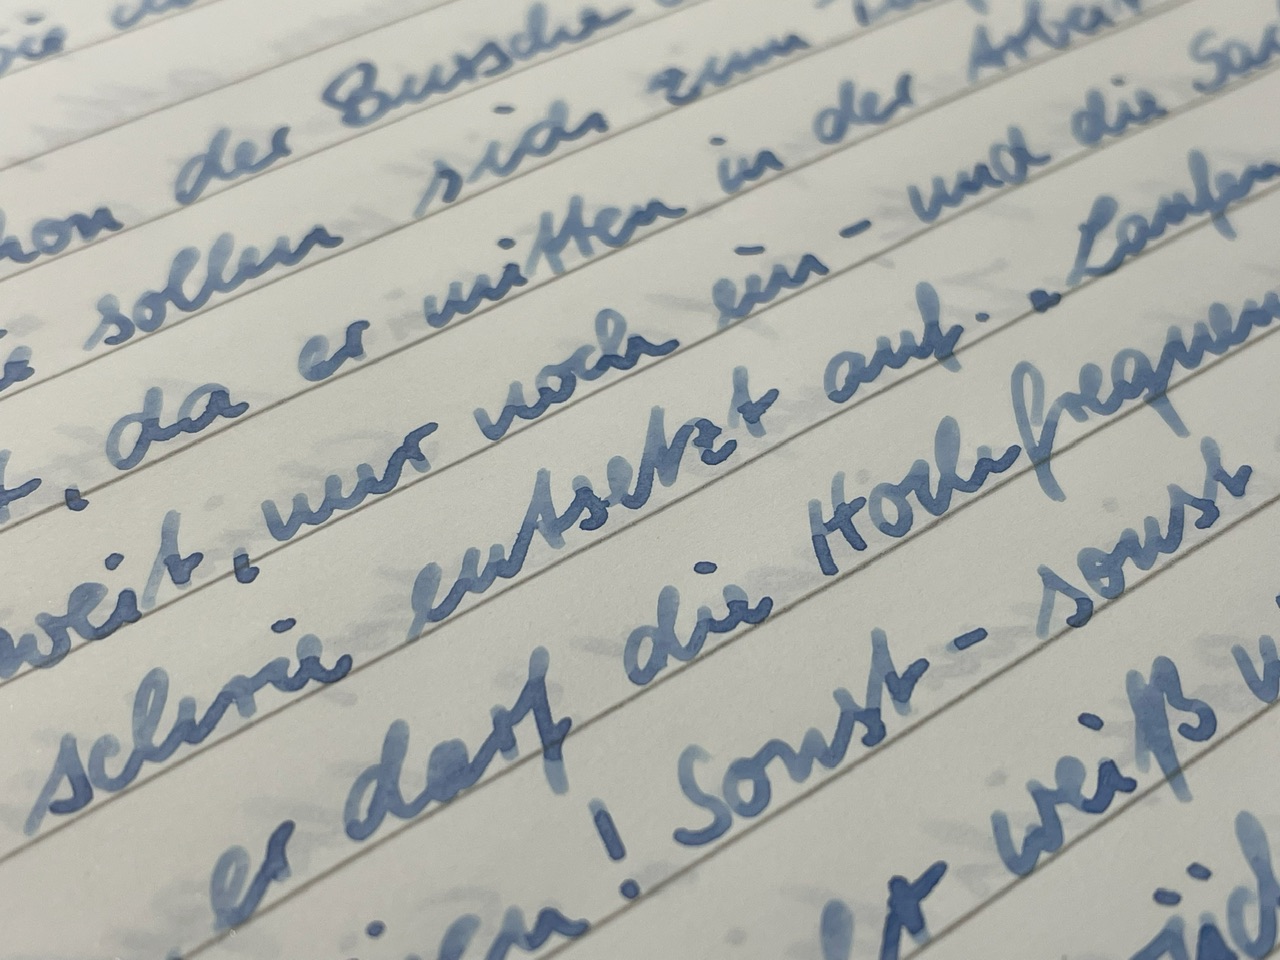 der Bursche
sollen sich zum
da er mitten in der Arbeit
weit, nur noch ein - und die
schrie entsetzt auf. „Laufen
er darf die Hochfrequen
! Sonst - sonst
weiß